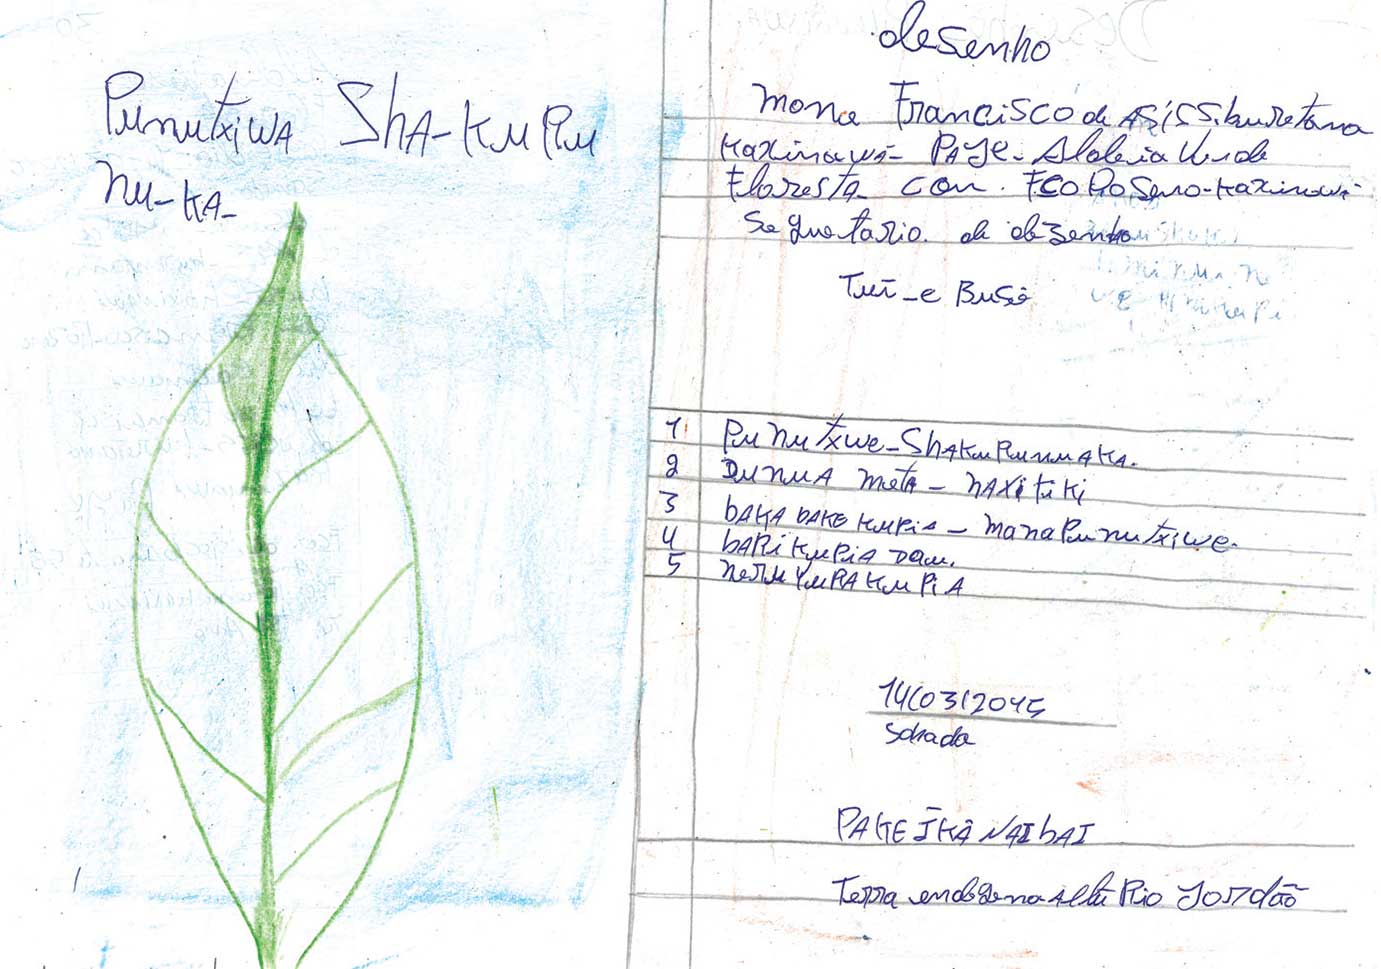 Punutxiwa Sha-kupu
nu-ka-
desenho
mona Francisco de Asiss.buretama
kaxinawá- Paje- Aldeia Verde
Floresta con. kaxinawá-
Seguetario. de desenho
Tuĩ-e Busẽ
1 Punutxwe-Shakupunuaka.
2 Dunua meta- naxituki
3 baka bake kupia- mana punutxiwe.
4 bari kupia Dau.
5 neru yura kupia
14/03/2015
Sobada
Pake ĩkã Naĩbai
Terra endegena Altu Rio Jordão